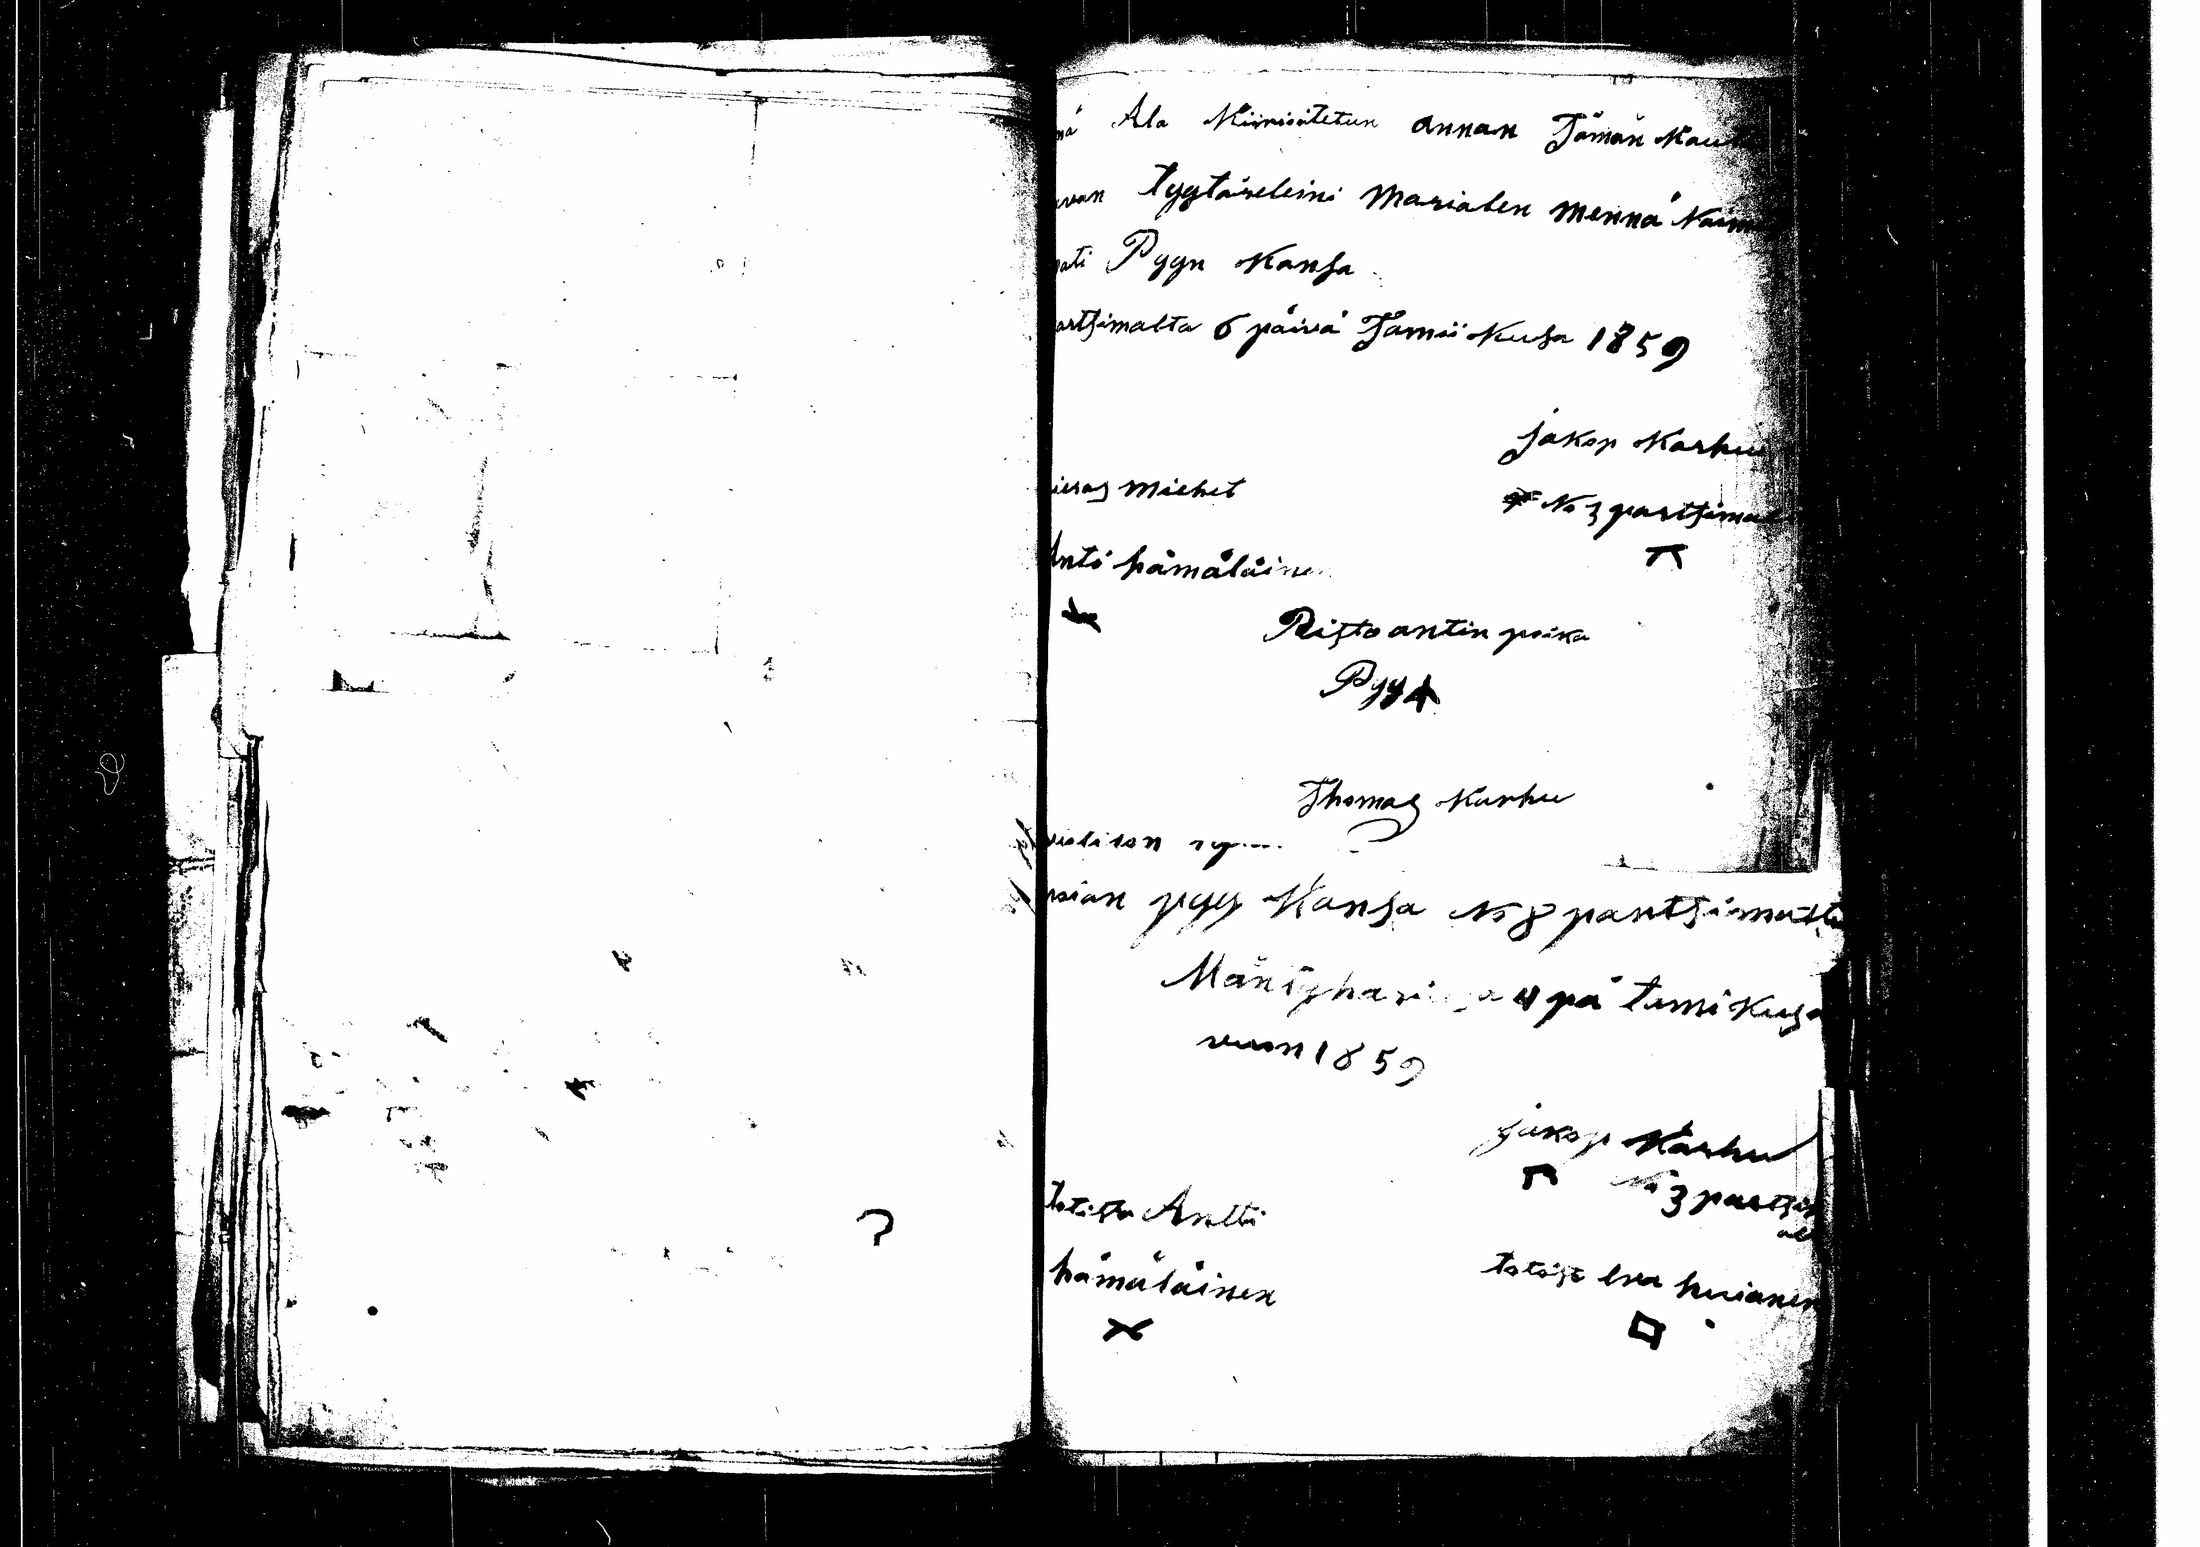 nä Ala Kiirioitetun annan Tämän Kau
van tyytäreleini Marialen mennä Naim
ati Pyyn Kansa
artsimalta 6 päivä Tamii Kusa 1859
jakop Karhu
ieras Miehet
No 3 partsimal
Anti hämäläinen
Risto antin poika
Pyy
Thomas Karhu
pyy Kansa No 8 partsimalta
4 pä tamikusa
vuon 1859
jakop Karhu
No 3 partsim
al
totista Antti
hämäläinen
totista Esa huianen